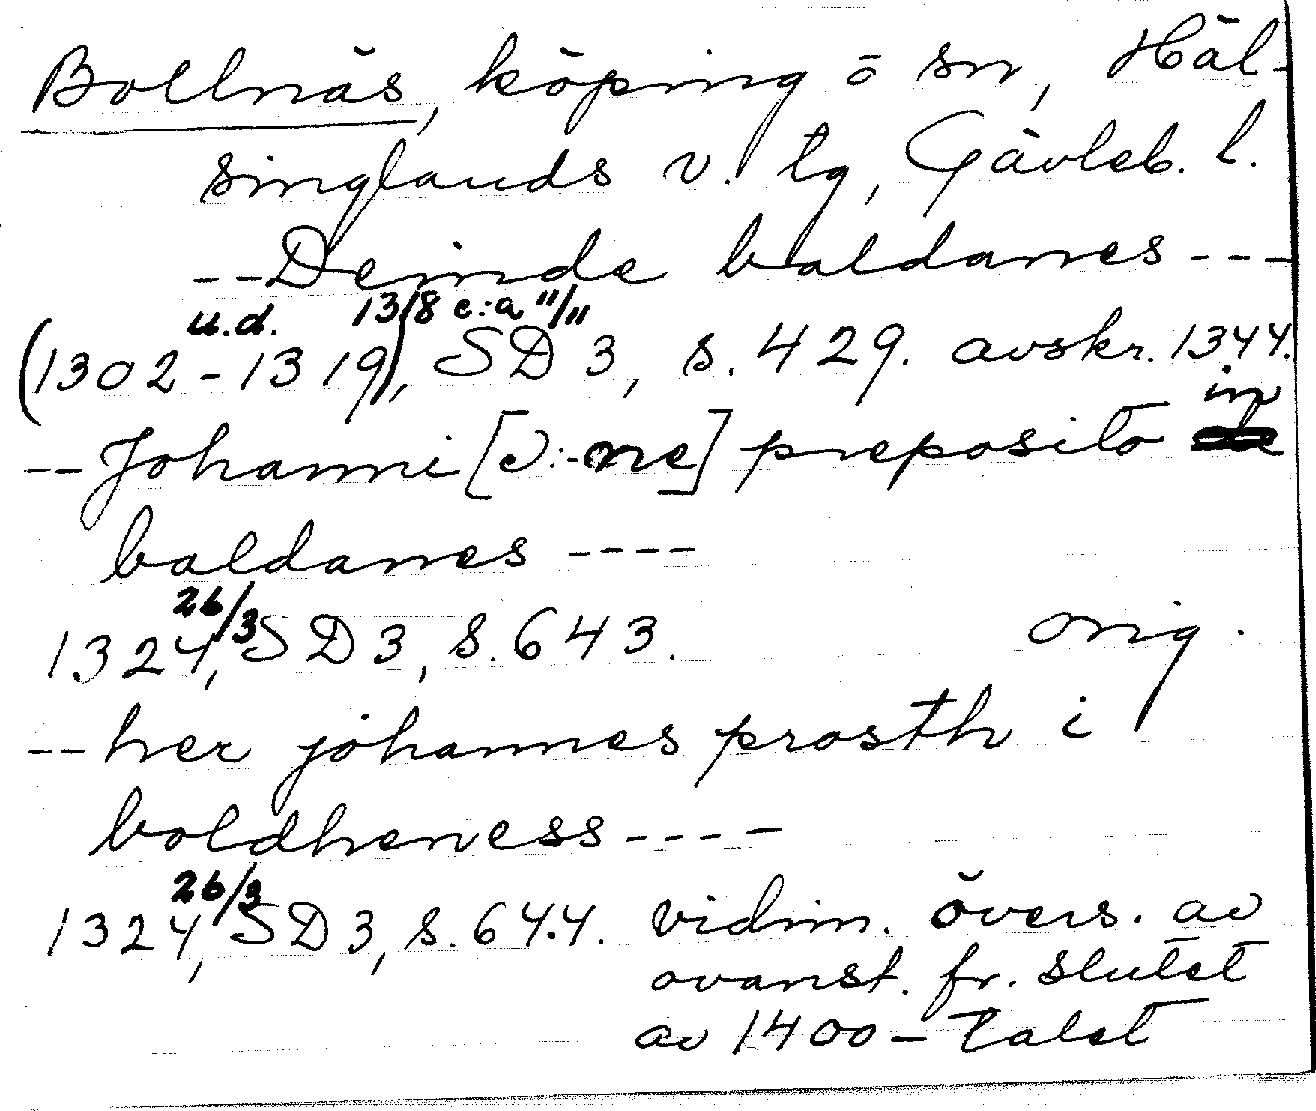 Bollnäs, köping o sn, Häl-
singlands v. tg, Gävleb. l.
--Deinde baldanes---
u.d. 13/8 c:a "/11
(1302-1319), SD 3, s. 429. avskr. 1344.
--Johanni [ɔ:-ne] preposito in
baldanes ----
26/3
1324, SD 3, s. 643. orig.
--her johannes prosth i
boldheness----
26/3
1324, SD 3, s. 644. vidim. övers. av
ovanst. fr. slutet
av 1400-talet